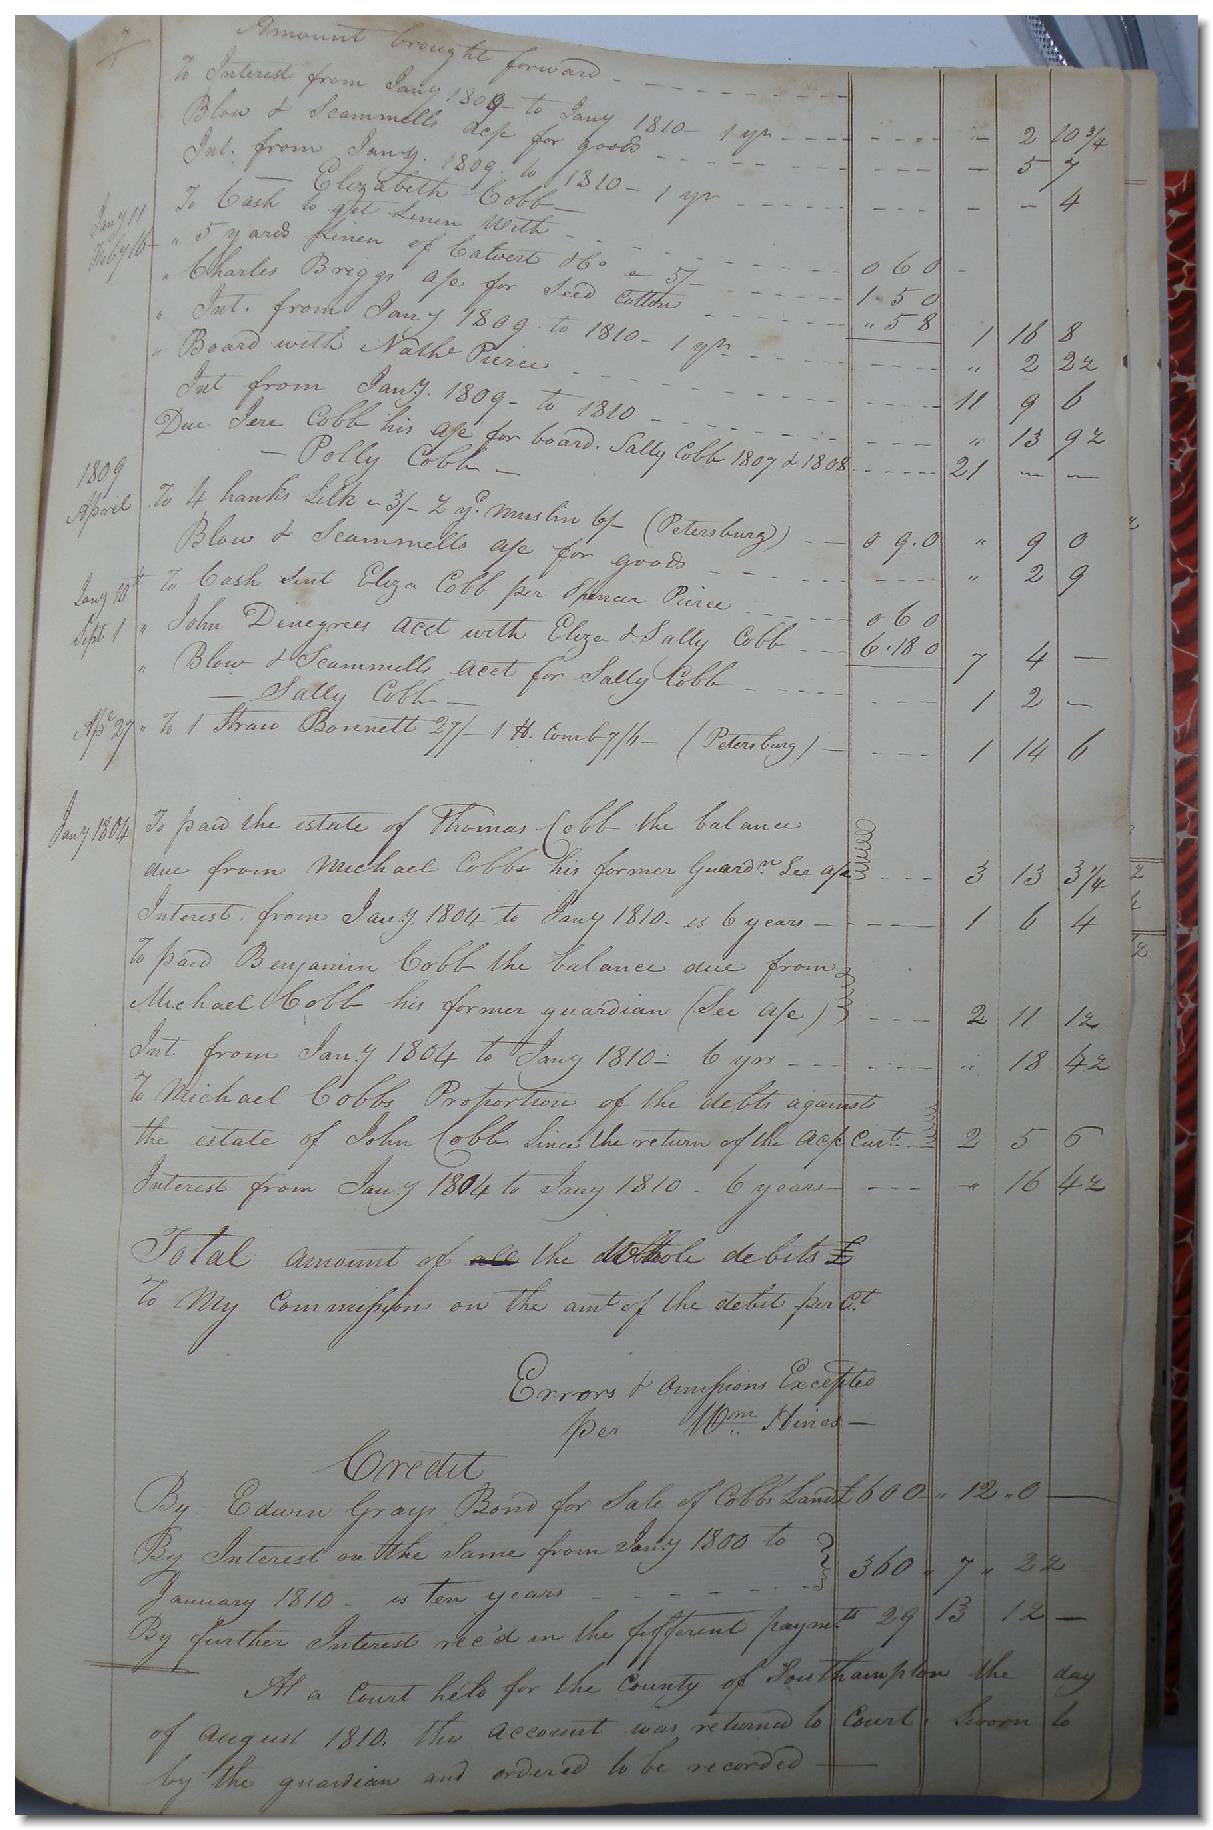 Amount brought forward
To Interest from Jany 1809 to Jany 1810 - 1 yr - 2 10 3/4
Blow & Scammells acp for goods - 5 7
Int. from Jany. 1809 to 1810 - 1 yr - - 4
— Elizabeth Cobb —
Jany 11 To Cash to get Linen With 0 6 0
Feby 16 " 5 yards Linen of Calvert &Co a 5/ 1 5 0
" Charles Briggs a/c for Seed Cotton " 5 8 1 16 8
" Int. from Jany 1809 to 1810 - 1 yr " 2 2½
" Board with Nathl Pierce 11 9 6
Int from Jany. 1809 - to 1810 " 13 9½
Due Jere Cobb his a/c for board. Sally Cobb 1807 & 1808 21 — —
— Polly Cobb —
1809
April To 4 hanks Silk a 3/- 2 yd. muslin 6/- (Petersburg) 0 9.0 " 9 0
Blow & Scammells a/c for goods " 2 9
Jany 10th To Cash sent Eliza Cobb per Spencer Pierce 0 6 0
Sept 1 " John Dinegrees acct with Eliza & Sally Cobb 6.18 0 7 4 —
" Blow & Scammells acct for Sally Cobb 1 2 —
— Sally Cobb —
Apl 27 " To 1 Straw Bonnett 27/- 1 H. Comb 7/6 - (Petersburg) 1 14 6
Jany 1804 To paid the estate of Thomas Cobb the balance
due from Michael Cobbs his former Guardn. See a/c 3 13 3¼
Interest from Jany. 1804 to Jany 1810 - is 6 years 1 6 4
To paid Benjamin Cobb the balance due from
Michael Cobb his former guardian (See a/c) 2 11 1½
Int from Jany 1804 to Jany 1810 - 6 yrs " 18 4½
To Michael Cobbs Proportion of the debts against
the estate of John Cobb Since the return of the acp Curt. 2 5 6
Interest from Jany 1804 to Jany 1810 - 6 years " 16 4½
Total amount of all the Whole debits £
To My Commissions on the amt of the debit per Ct.
Errors & omissions Excepted
per Wm. Hines —
Credit
By Edwin Grays Bond for Sale of Cobbs Land £600 " 12 " 0 —
By Interest on the Same from Jany 1800 to
January 1810 - is ten years 360 " 7 " 2½
By further Interest rec'd in the different paymts 29 13 1½ —
At a Court held for the County of Southampton the day
of August 1810. this account was returned to Court. Sworn to
by the guardian and ordered to be recorded —